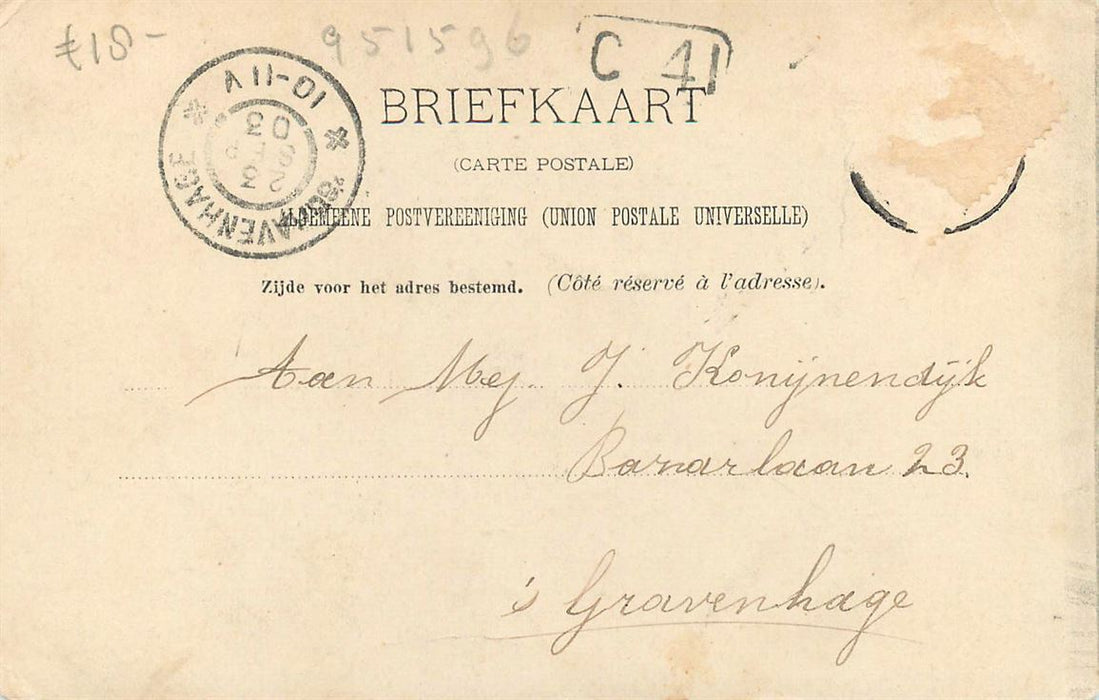 €18-
951596
C 41
BRIEFKAART
(CARTE POSTALE)
ALGEMEENE POSTVEREENIGING (UNION POSTALE UNIVERSELLE)
Zijde voor het adres bestemd. (Côté réservé à l'adresse).
'SGRAVENHAGE
10-11V
03
Aan Mej. J. Konijnendijk
Bazarlaan 23.
's Gravenhage